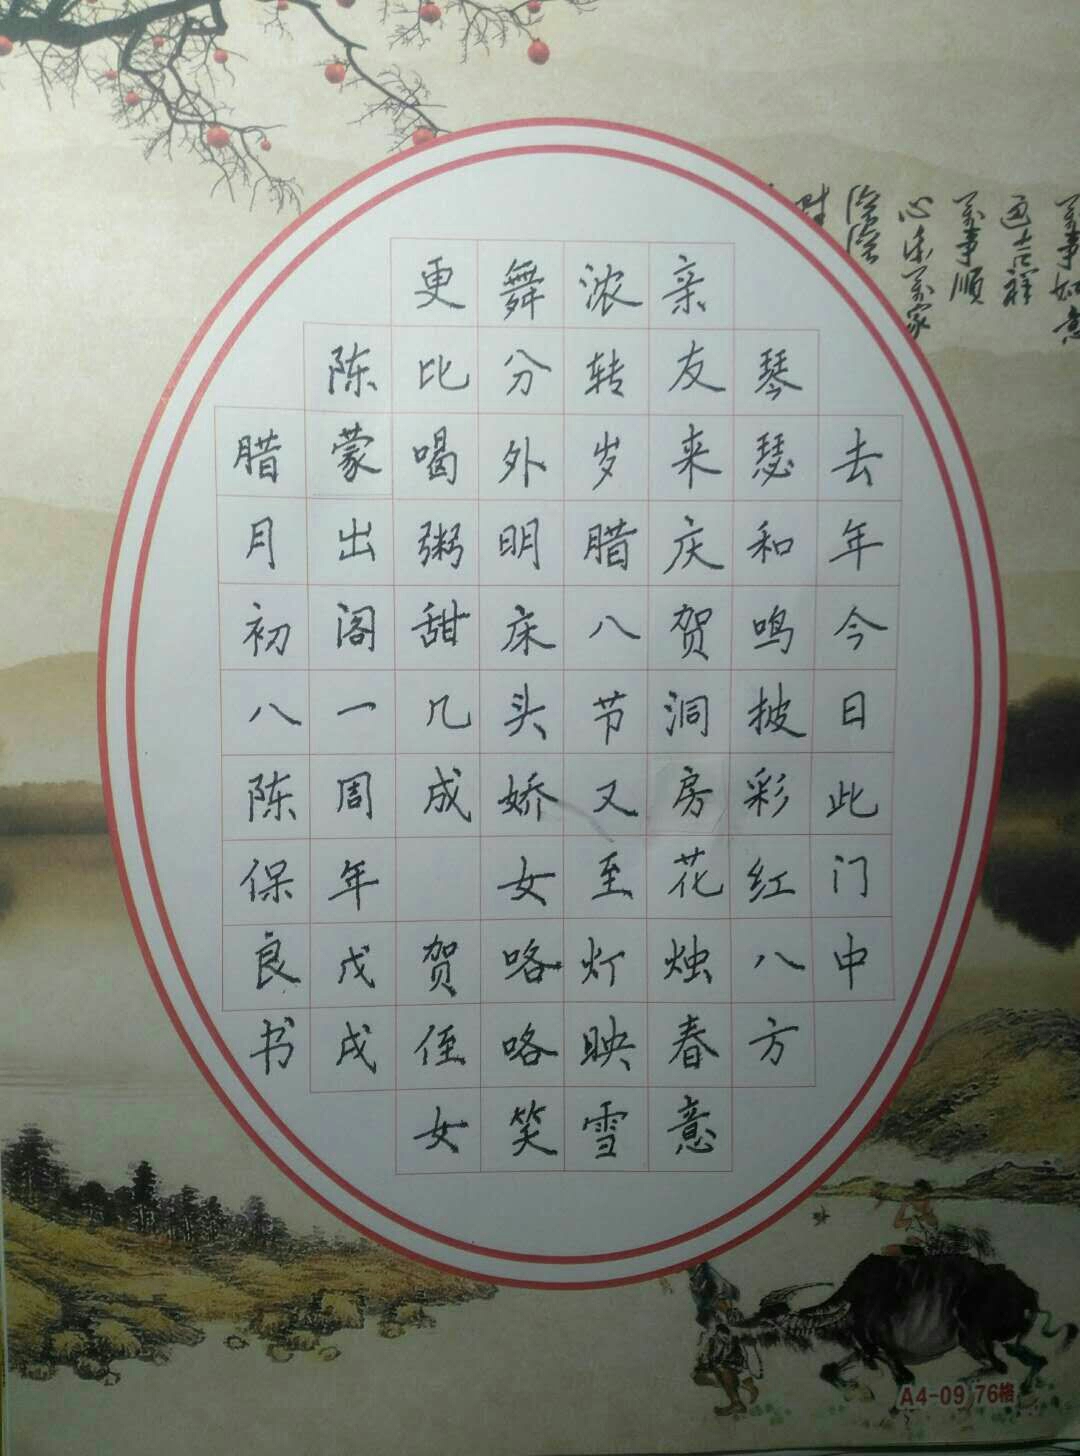 万事如意
万事顺
去年今日此门中
琴瑟和鸣披彩红八方
亲友来庆贺洞房花烛春意
浓转岁腊八节又至灯映雪
舞分外明床头娇女咯咯笑
更比喝粥甜几成 贺侄女
陈蒙出阁一周年戊戌
腊月初八陈保良书
A4-09 76格